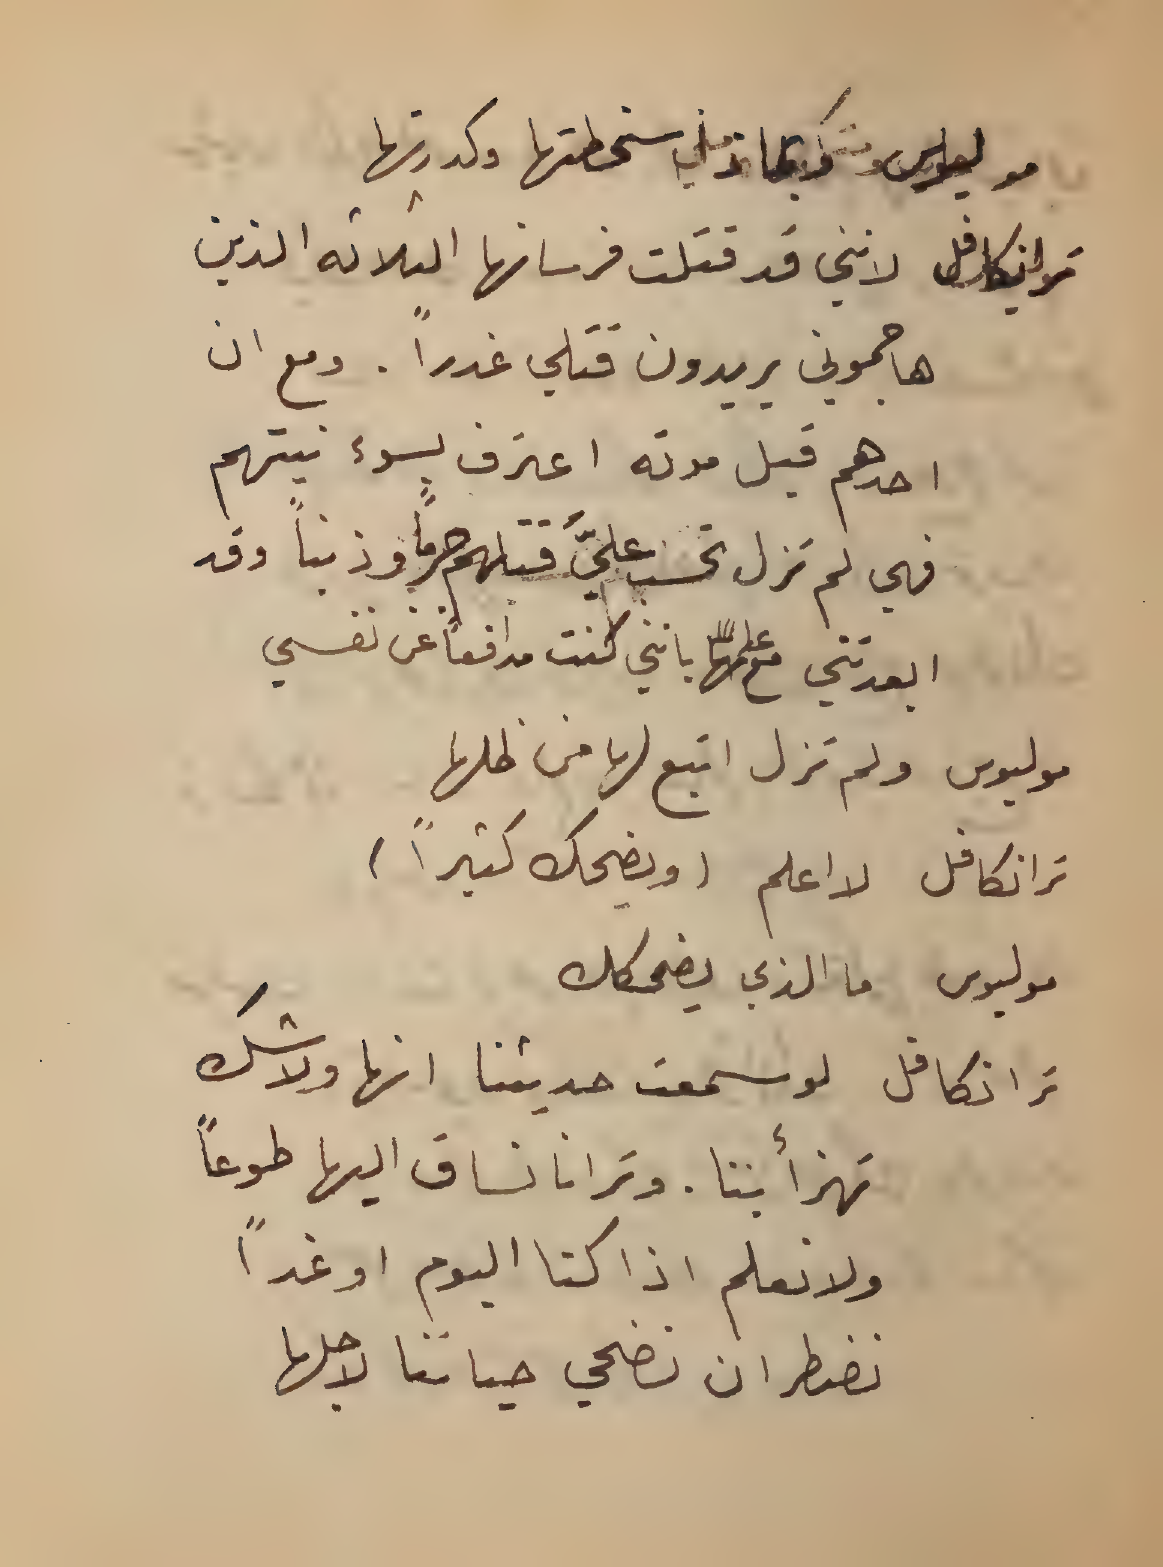 موليوس وبماذا سخطتها وكدرتها
ترانكافل لانني قد قتلت فرسانها الثلاثه الذين
هاجموني يريدون قتلي غدراً . ومع ان
احدهم قبل موته اعترف بسوء نيتهم
فهي لم تزل تحسب عليَّ قتلهم جرماً وذنباً وقد
ابعدتني مع علمها بانني كنت مدافعاً عن نفسي
موليوس ولم تزل اتبع لها من ظلها
ترانكافل لا اعلم (ويضحك كثيراً)
موليوس ما الذي يضحكك
ترانكافل لو سمعت حديثنا انها ولا شك
تهزأ بنا . وترانا نساق اليها طوعاً
ولا نعلم اذا كنا اليوم او غداً
نضطر ان نضحي حياتنا لاجلها